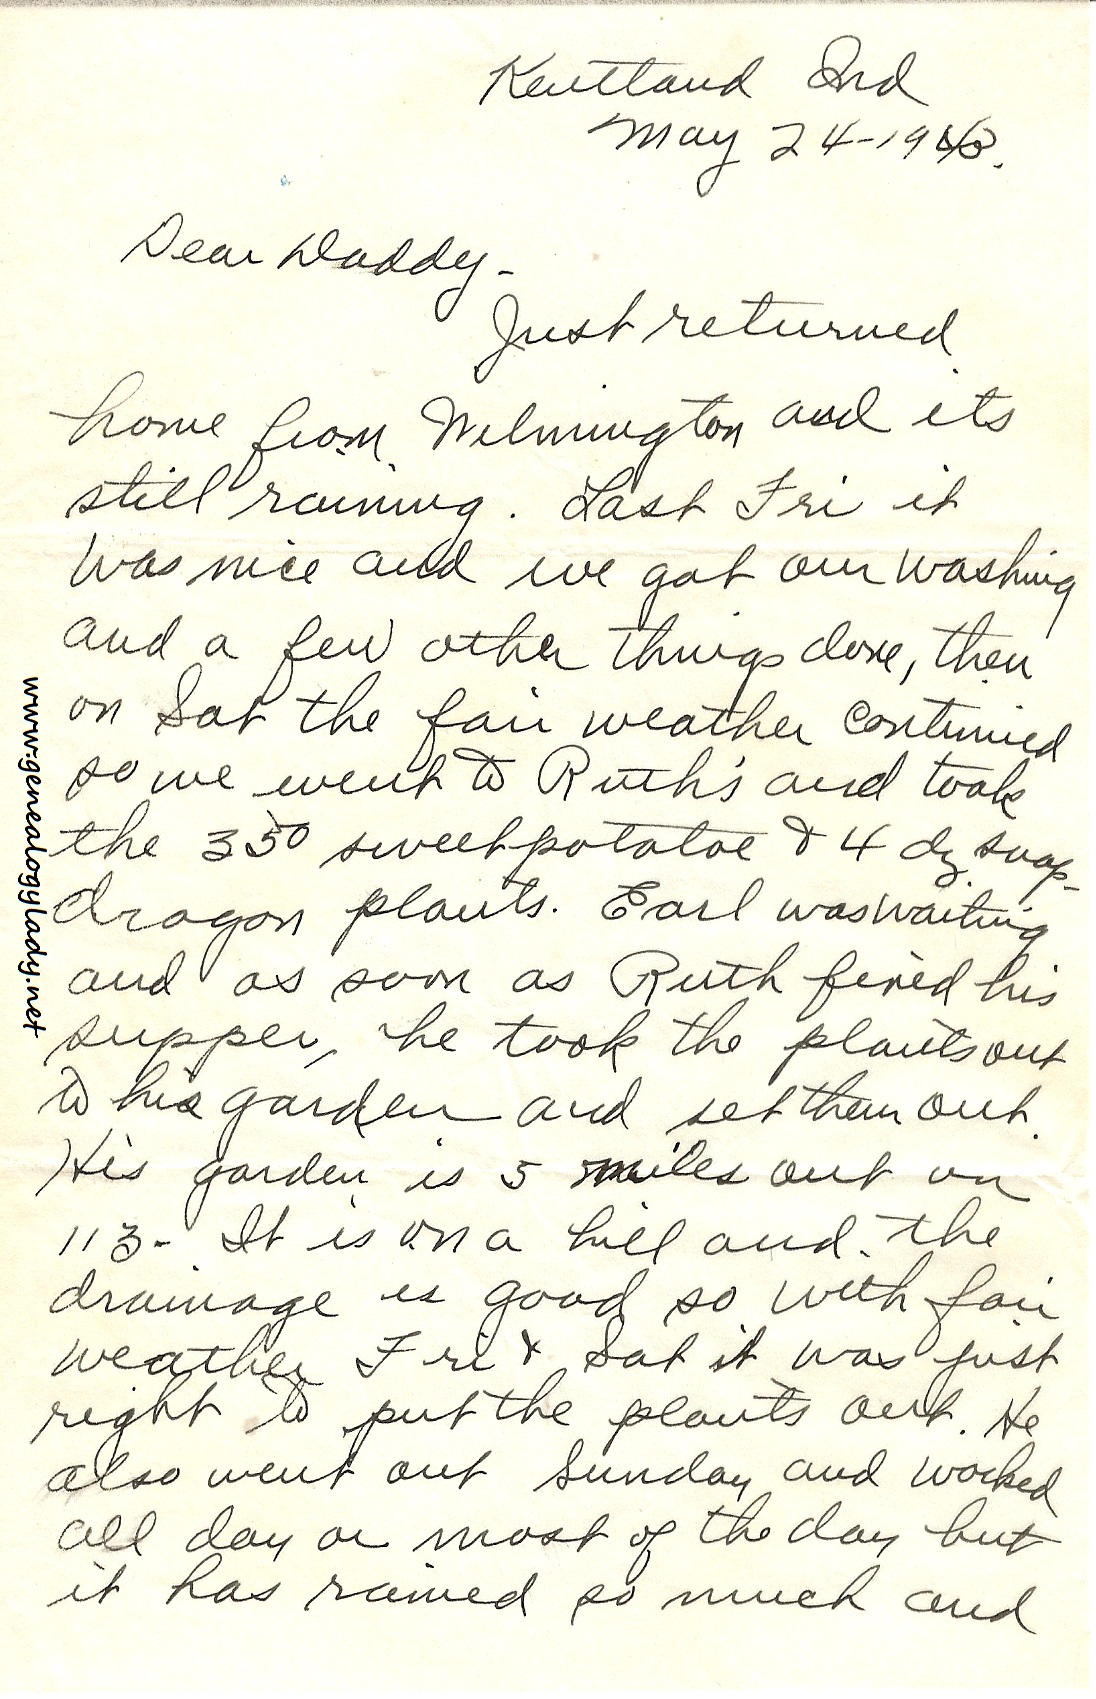 Kentland Ind
May 24-1943.
Dear Daddy-
Just returned
home from Wilmington and its
still raining. Last Fri it
was nice and we got our washing
and a few other things done, then
on Sat the fair weather continued
so we went to Ruth's and took
the 350 sweetpotatoe & 4 dz snap-
dragon plants. Earl was waiting
and as soon as Ruth fixed his
supper, he took the plants out
to his garden and set them out.
His garden is 5 miles out on
113- It is on a hill and the
drainage is good so with fair
weather Fri & Sat it was just
right to put the plants out. He
also went out Sunday and worked
all day or most of the day but
it has rained so much and
www.genealogylady.net